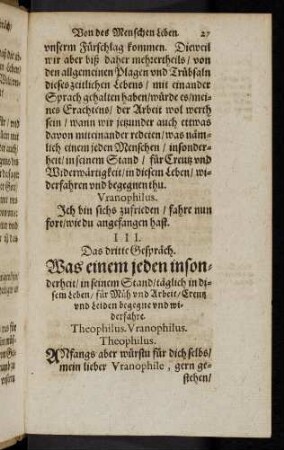 Von des Menschen Leben. 27
vnserm Fürschlag kommen. Dieweil
wir aber biß daher mehrertheils/ von
den allgemeinen Plagen vnd Trübsaln
dieses zeitlichen Lebens/ mit einander
Sprach gehalten haben/ würde es/ mei-
nes Erachtens/ der Arbeit wol werth
sein/ wann wir jetzunder auch ettwas
davon miteinander redeten/ was näm-
lich einem jeden Menschen/ insonder-
heit/ in seinem Stand/ für Creutz vnd
Widerwärtigkeit/ in diesem Leben/ wi-
derfahren vnd begegnen thu.
Vranophilus.
Jch bin sichs zufrieden/ fahre nun
fort/ wie du angefangen hast.
III.
Das dritte Gespräch.
Was einem jeden inson-
derheit/ in seinem Stand/ täglich in di-
sem Leben/ für Müh vnd Arbeit/ Creutz
vnd Leiden begegne vnd wi-
derfahre.
Theophilus. Vranophilus.
Theophilus.
ANfangs aber würstu für dich selbs/
mein lieber Vranophile, gern ge-
stehen/